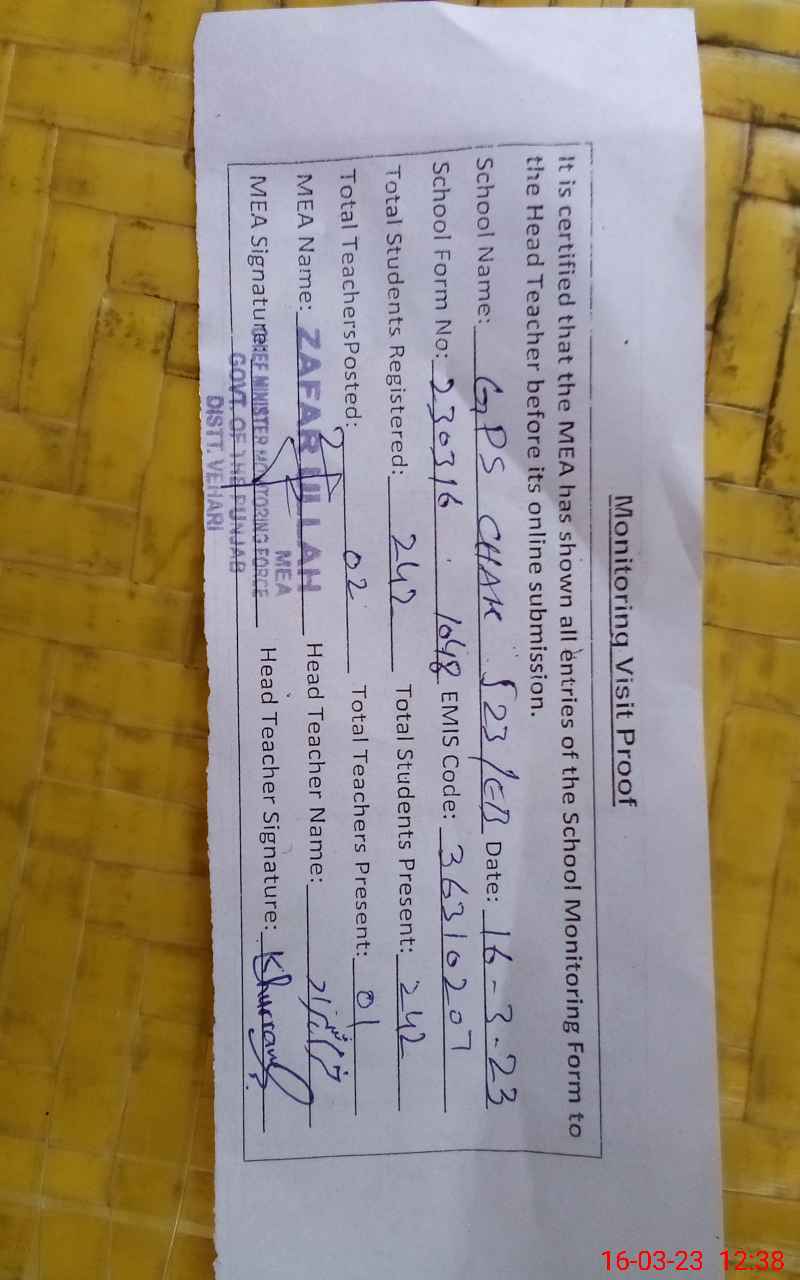 Monitoring Visit Proof
It is certified that the MEA has shown all entries of the School Monitoring Form to
the Head Teacher before its online submission.
School Name: GPS CHAK 523/EB Date: 16-3-23
School Form No: 230316 1048 EMIS Code: 36310207
Total Students Registered: 242 Total Students Present: 242
Total TeachersPosted: 02 Total Teachers Present: 01
MEA Name: ZAFAR ULLAH Head Teacher Name:
MEA
MEA Signature: Head Teacher Signature: Khurram
CHIEF MINISTER MONITORING FORCE
GOVT. OF THE PUNJAB
DISTT. VEHARI
16-03-23 12:38